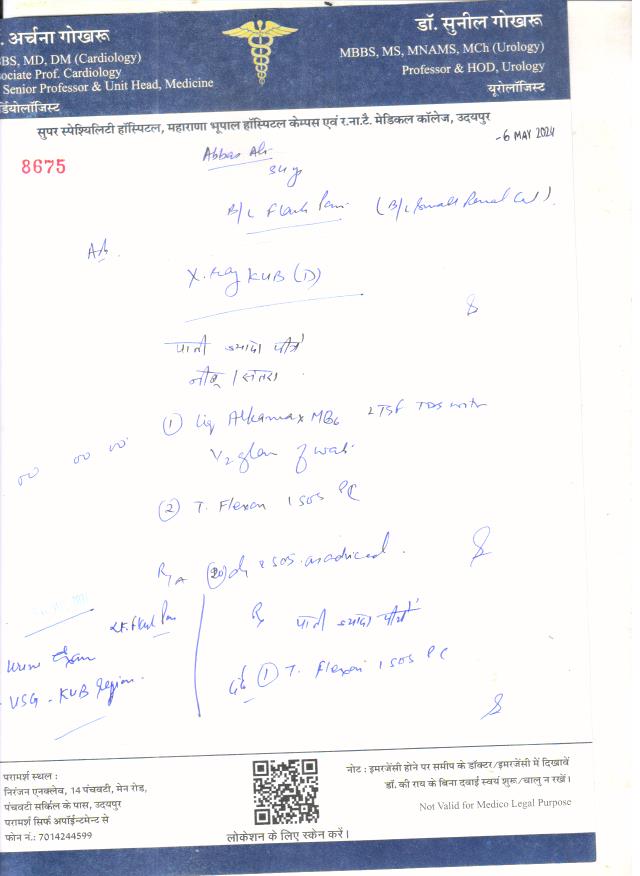 . अर्चना गोखरू
BS, MD, DM (Cardiology)
ociate Prof. Cardiology
Senior Professor & Unit Head, Medicine
र्डियोलॉजिस्ट
डॉ. सुनील गोखरू
MBBS, MS, MNAMS, MCh (Urology)
Professor & HOD, Urology
यूरोलॉजिस्ट
सुपर स्पेश्यिलिटी हॉस्पिटल, महाराणा भूपाल हॉस्पिटल केम्पस एवं र.ना.टै. मेडिकल कॉलेज, उदयपुर
- 6 MAY 2024
8675
Abbas Ali
34 y
B/L Flank Pain (B/L Small Renal Cal).
Adv.
X-ray KUB (D)
पानी ज्यादा पीये
नींबू / संतरा
① Liq Alkamax MB6 2 TSF TDS with
1/2 glass of wat.
② T. Flexon 1 SOS PC
SOS as adviced.
Lt. Flank Pain
Urine Exam
- USG - KUB Region.
Rx पानी ज्यादा पीये
① T. Flexon 1 SOS PC
परामर्श स्थल :
निरंजन एनक्लेव, 14 पंचवटी, मेन रोड,
पंचवटी सर्किल के पास, उदयपुर
परामर्श सिर्फ अपॉईन्टमेन्ट से
फोन नं.: 7014244599
लोकेशन के लिए स्केन करें।
नोट : इमरजेंसी होने पर समीप के डॉक्टर/इमरजेंसी में दिखावें
डॉ. की राय के बिना दवाई स्वयं शुरू/चालु न रखें।
Not Valid for Medico Legal Purpose